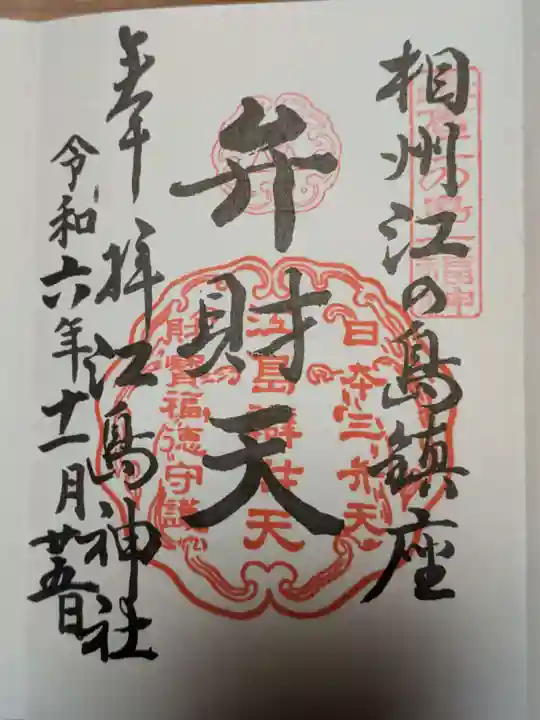 相州江の島鎮座
弁財天
日本三弁天
江島辨財天
財寶福徳守護
奉拝 江島神社
令和六年十一月廿五日